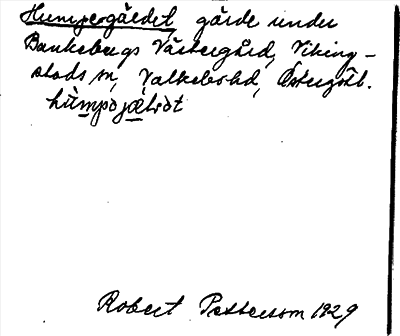 Humpergärdet gärde under
Bankebergs Västergård, Viking-
stads sn, Valkebo hd, Östergötl.
Robert Pettersson 1929